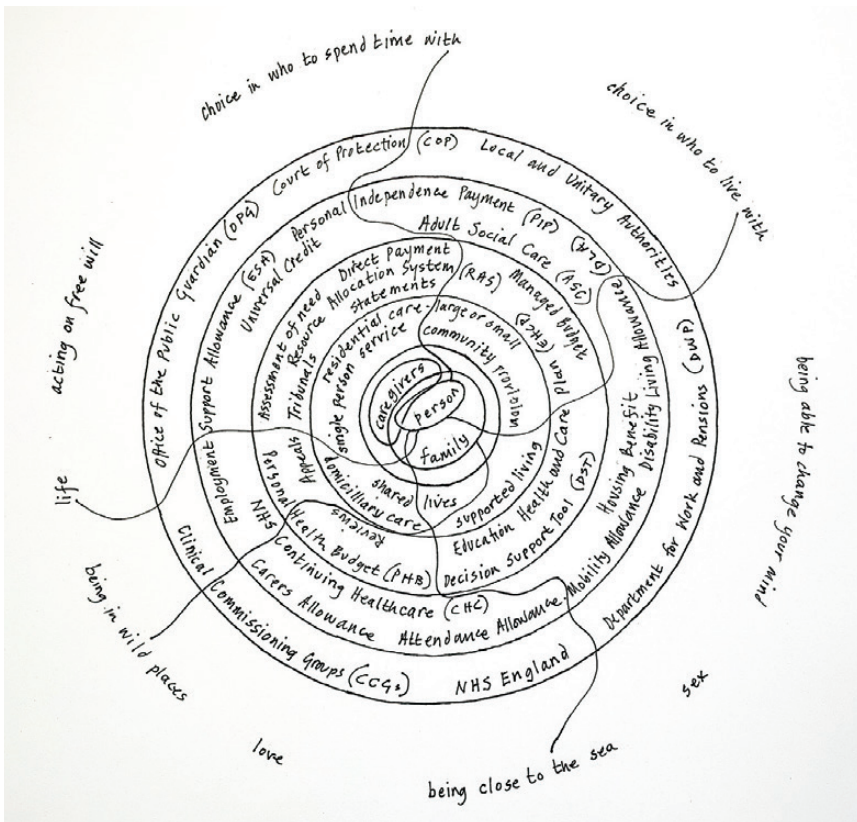 choice in who to spend time with
choice in who to live with
being able to change your mind
sex
being close to the sea
love
being in wild places
life
acting on free will
Office of the Public Guardian (OPG)
Court of Protection (COP)
Local and Unitary Authorities
Department for Work and Pensions (DWP)
NHS England
Clinical Commissioning Groups (CCGs)
Employment Support Allowance (ESA)
Universal Credit
Personal Independence Payment (PIP)
Adult Social Care (ASC)
Disability Living Allowance (DLA)
Housing Benefit
Mobility Allowance
Attendance Allowance
Carers Allowance
NHS Continuing Healthcare (CHC)
Assessment of need
Direct Payment
Resource Allocation System (RAS)
statements
Managed Budget
Education Health and Care Plan (EHCP)
Decision Support Tool (DST)
Personal Health Budget (PHB)
Reviews
Appeals Tribunals
residential care - large or small
single person service
community provision
supported living
shared lives
domicilliary care
caregivers
person
family